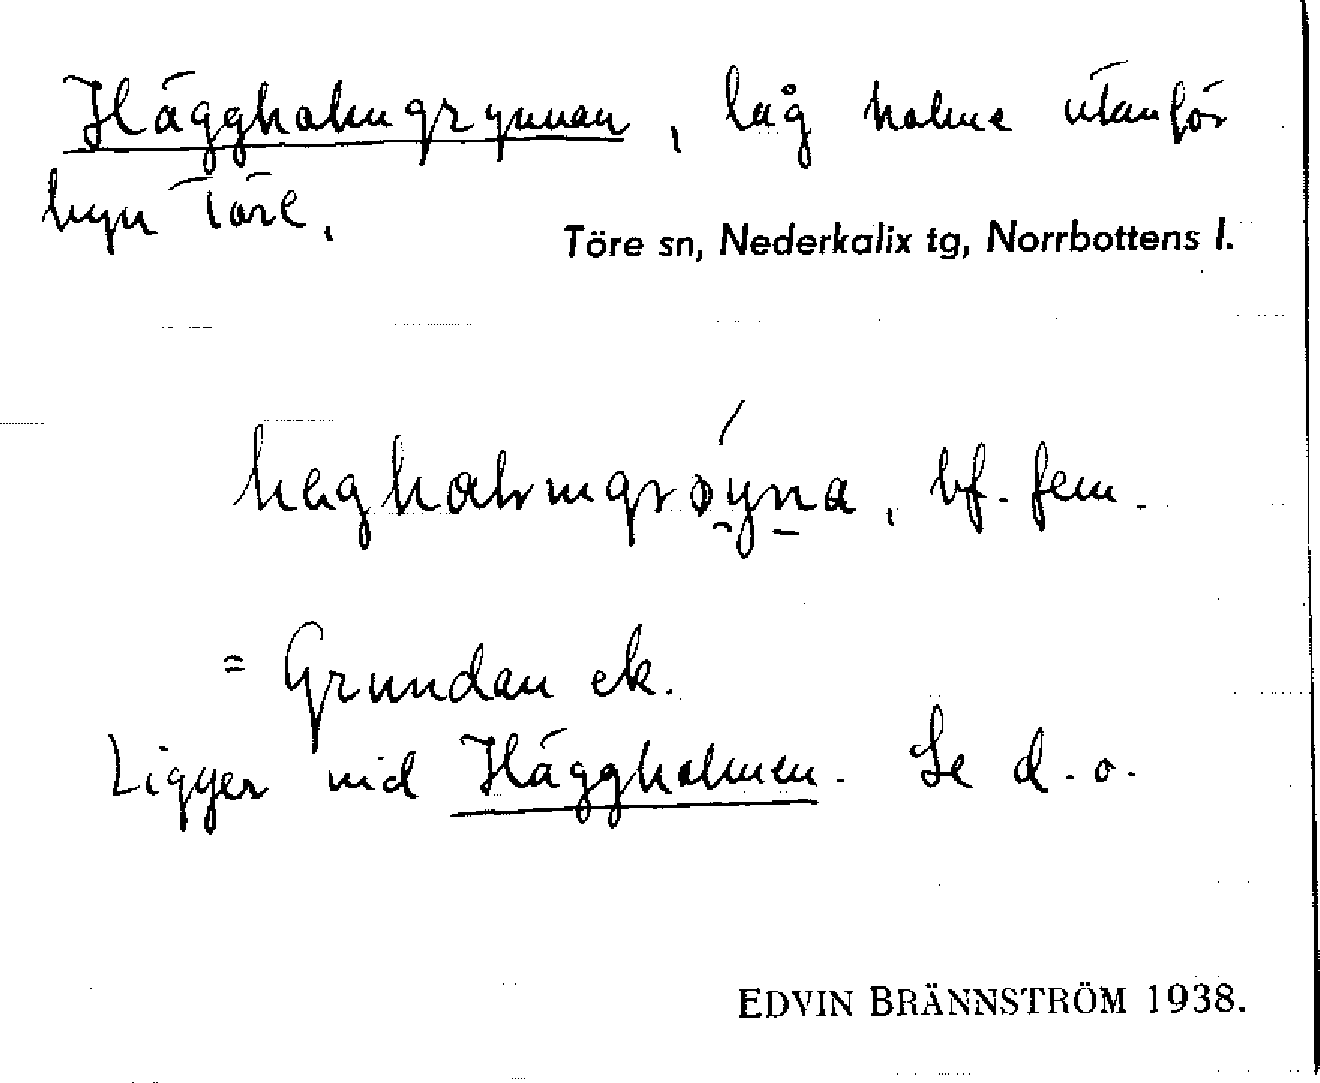 Häggholmgrynnan, låg holme utanför
byn Töre.
Töre sn, Nederkalix tg, Norrbottens l.
= Grundan ek.
Ligger vid Häggholmen. Se d. o.
EDVIN BRÄNNSTRÖM 1938.